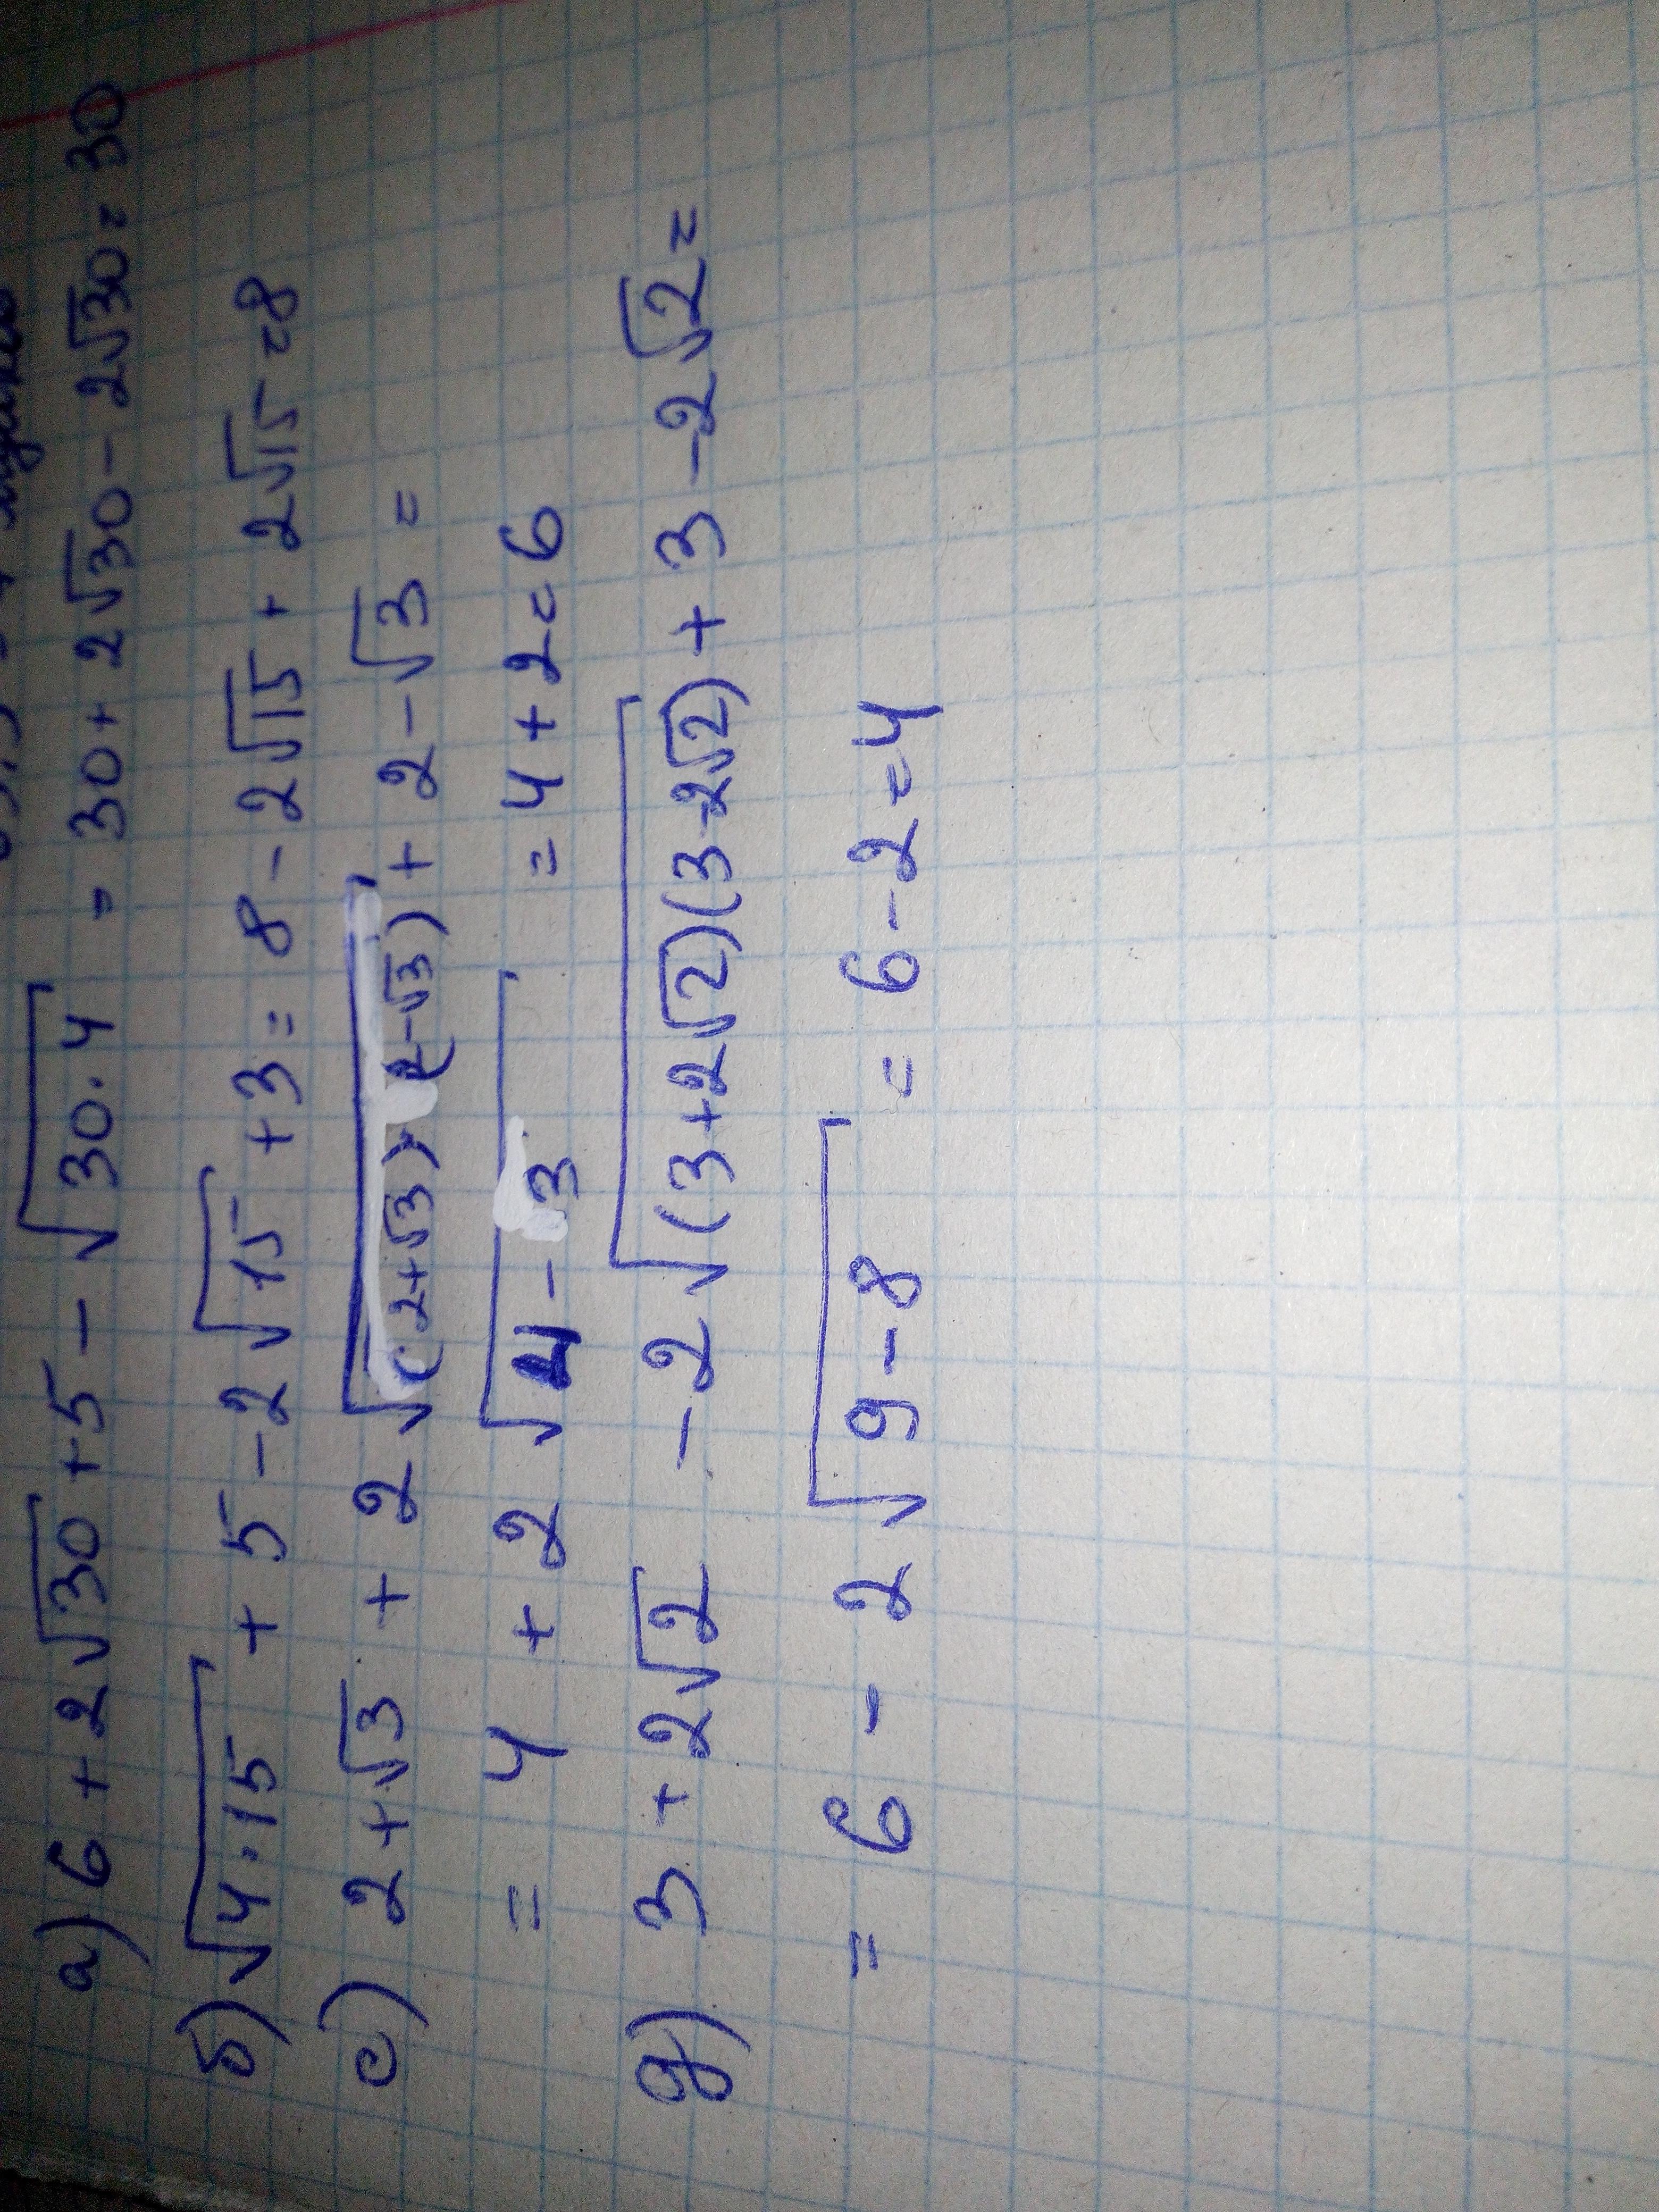 а) 6 + 2√30 + 5 - √(30·4) = 30 + 2√30 - 2√30 = 30
б) √(4·15) + 5 - 2√15 + 3 = 8 - 2√15 + 2√15 = 8
с) 2 + √3 + 2√((2+√3)(2-√3)) + 2 - √3 =
= 4 + 2√(4 - 3) = 4 + 2 = 6
д) 3 + 2√2 - 2√((3+2√2)(3-2√2)) + 3 - 2√2 =
= 6 - 2√(9-8) = 6 - 2 = 4